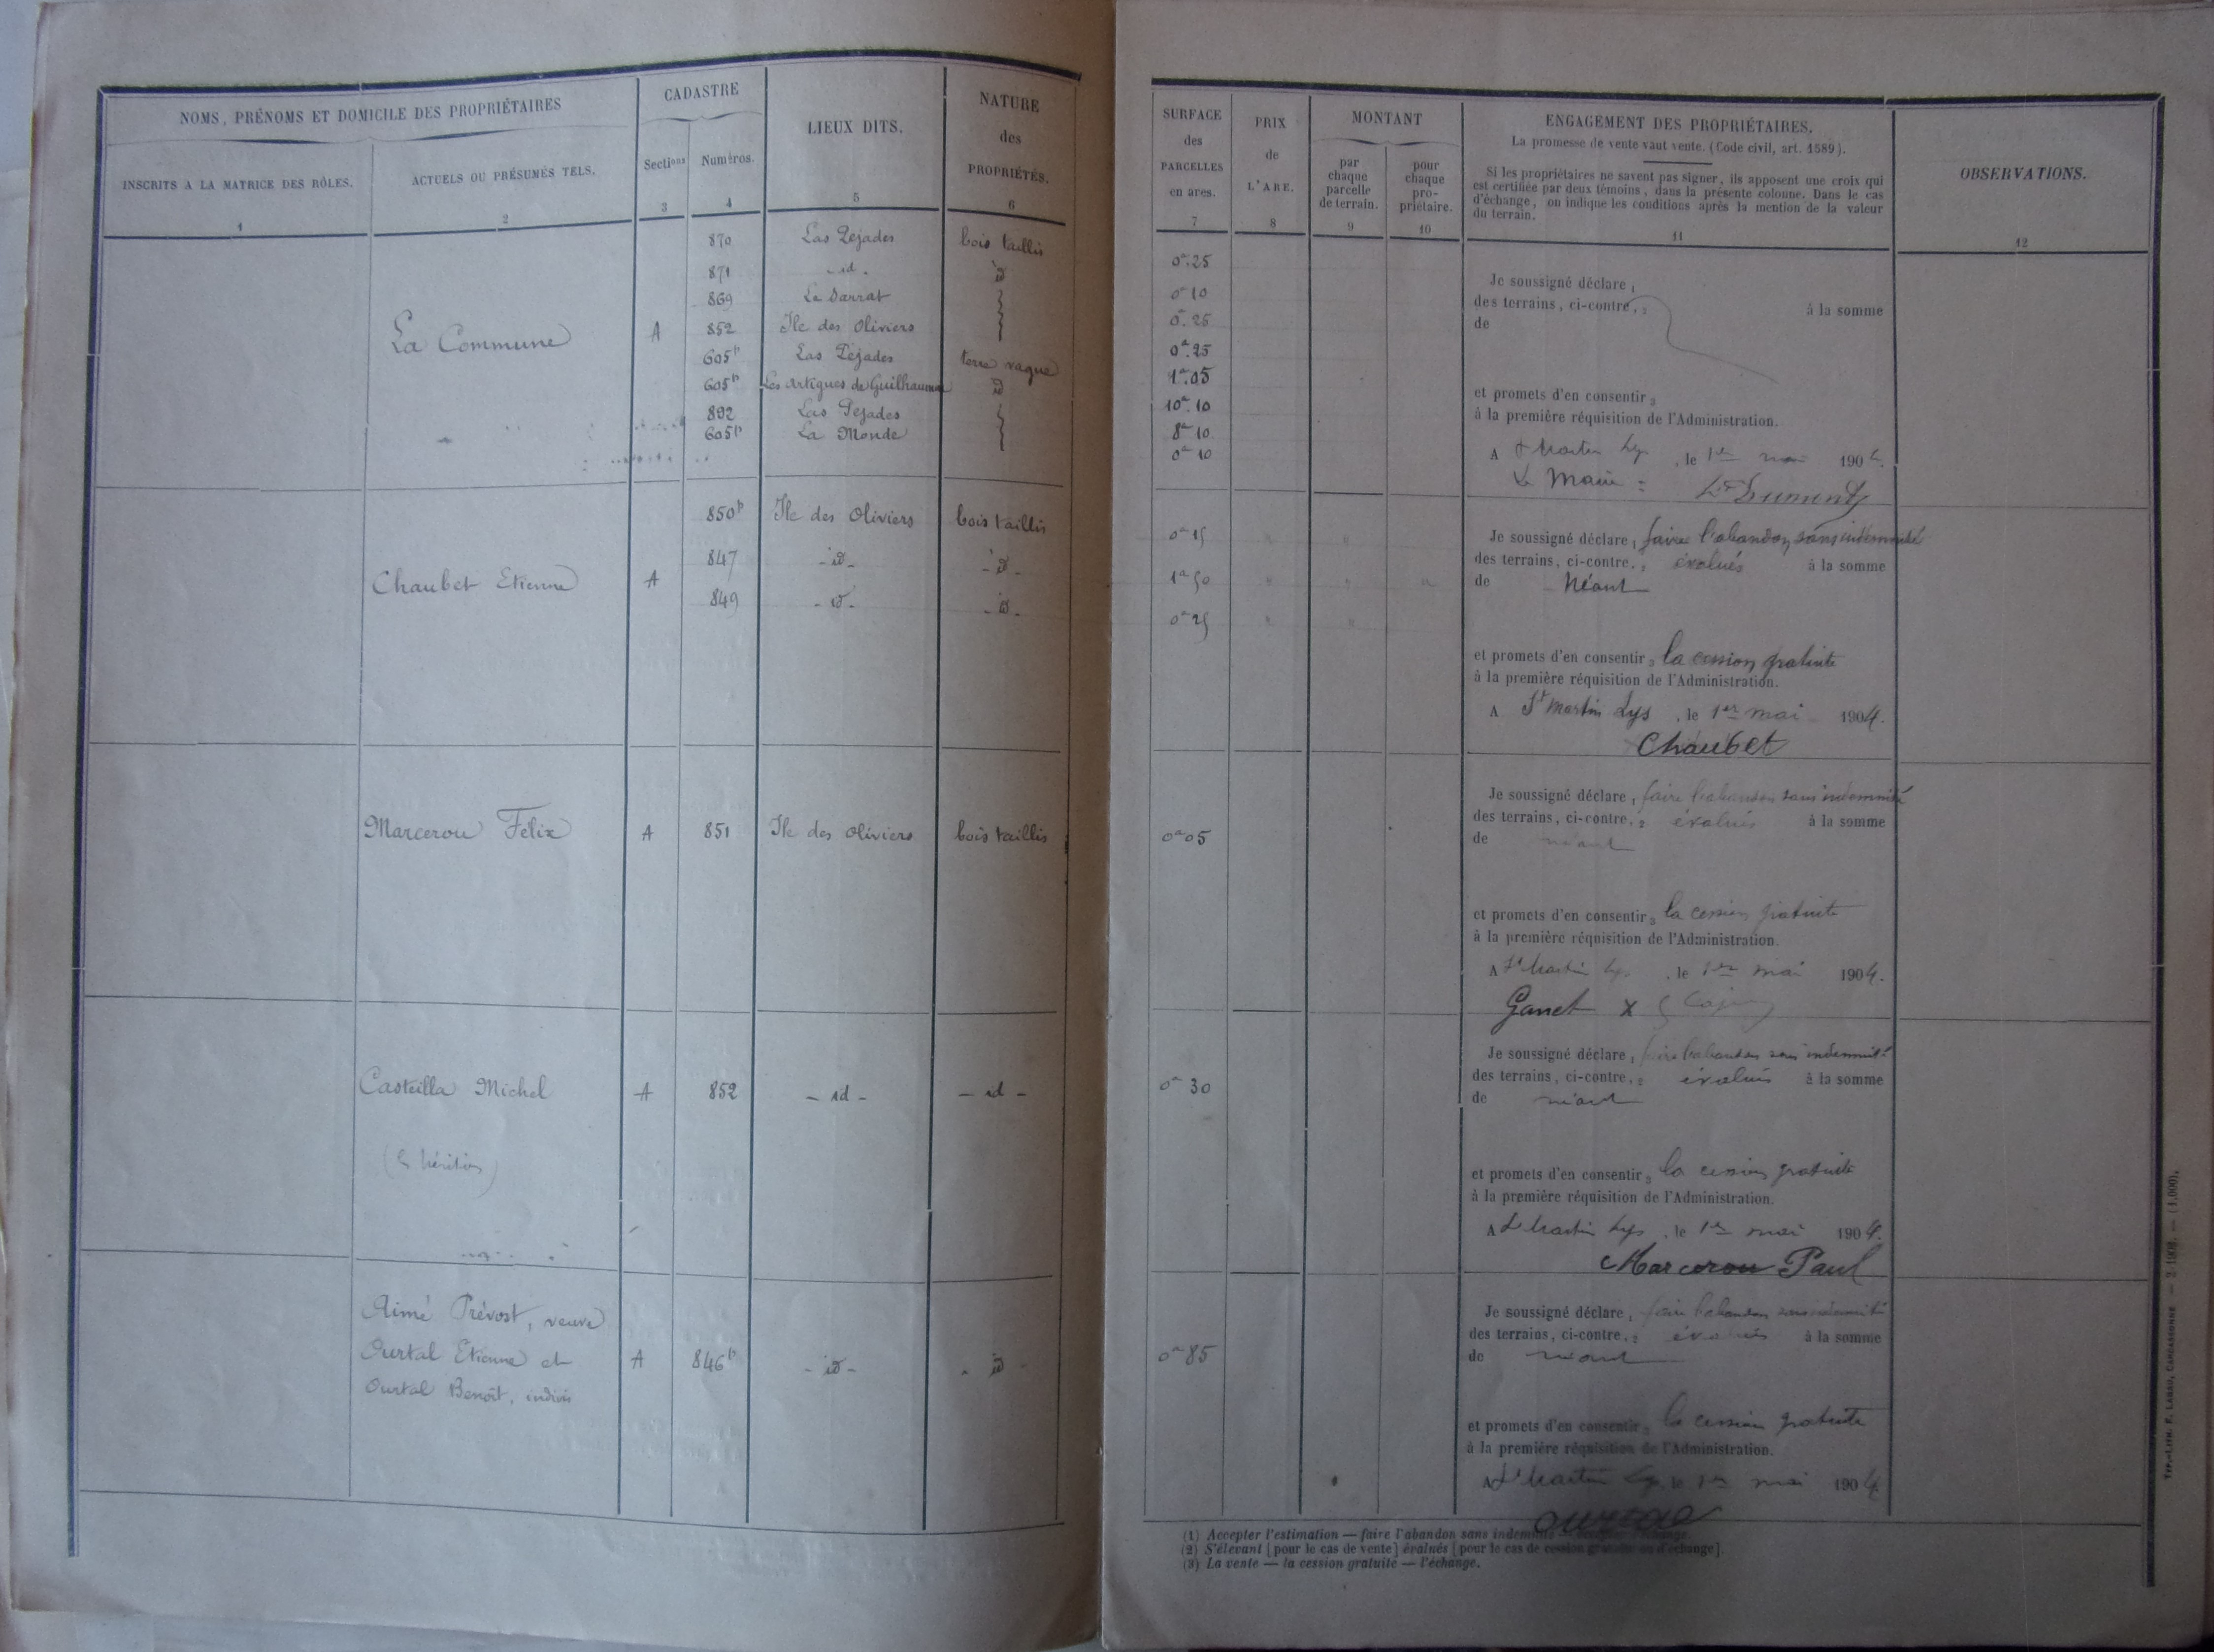 NOMS, PRÉNOMS ET DOMICILE DES PROPRIÉTAIRES
INSCRITS A LA MATRICE DES RÔLES.
1
ACTUELS OU PRÉSUMÉS TELS.
2
CADASTRE
Sections
3
Numéros.
4
LIEUX DITS.
5
NATURE
des
PROPRIÉTÉS.
6
La Commune
A
870 Las Pejades bois taillis
871 - id - id
869 Le Sarrat
852 Ile des Oliviers
605p Las Pejades terre vague
605p Les Artigues de Guilhaumou id
892 Las Pejades
605p La Monde
Chaubet Etienne
A
850p Ile des Oliviers bois taillis
847 - id - - id -
849 - id - - id -
Marcerou Felix A 851 Ile des oliviers bois taillis
Casteilla Michel A 852 - id - - id -
(les héritiers)
Aimé Prévost, veuve
Ourtal Etienne et A 846p - id - - id -
Ourtal Benoît, indivis
SURFACE
des
PARCELLES
en ares.
7
PRIX
de
L'ARE.
8
MONTANT
par
chaque
parcelle
de terrain.
9
pour
chaque
pro-
priétaire.
10
ENGAGEMENT DES PROPRIÉTAIRES.
La promesse de vente vaut vente. (Code civil, art. 1589).
Si les propriétaires ne savent pas signer, ils apposent une croix qui
est certifiée par deux témoins, dans la présente colonne. Dans le cas
d'échange, on indique les conditions après la mention de la valeur
du terrain.
11
OBSERVATIONS.
12
0a.25
0a 10
0a.25
0a.25
1a.05
10a.10
8a 10
0a 10
Je soussigné déclare 1
des terrains, ci-contre, 2 à la somme
de
et promets d'en consentir 3
à la première réquisition de l'Administration.
A St Martin Lys, le 1er mai 1904.
Le Maire :
0a 15
1a 50
0a 25
Je soussigné déclare 1 faire l'abandon sans indemnité
des terrains, ci-contre, 2 évalués à la somme
de Néant
et promets d'en consentir 3 la cession gratuite
à la première réquisition de l'Administration.
A St Martin Lys, le 1er mai 1904.
Chaubet
0a 05
Je soussigné déclare 1 faire l'abandon sans indemnité
des terrains, ci-contre, 2 évalués à la somme
de néant
et promets d'en consentir 3 la cession gratuite
à la première réquisition de l'Administration.
A St Martin Lys, le 1er mai 1904.
Ganet X
0a 30
Je soussigné déclare 1 faire l'abandon sans indemnité
des terrains, ci-contre, 2 évalués à la somme
de néant
et promets d'en consentir 3 la cession gratuite
à la première réquisition de l'Administration.
A St Martin Lys, le 1er mai 1904.
Marcerou Paul
0a 85
Je soussigné déclare 1 faire l'abandon sans indemnité
des terrains, ci-contre, 2 évalués à la somme
de néant
et promets d'en consentir 3 la cession gratuite
à la première réquisition de l'Administration.
A St Martin Lys, le 1er mai 1904.
ourtal
(1) Accepter l'estimation — faire l'abandon sans indemnité
(2) S'élevant [pour le cas de vente] évalués [pour le cas de cession gratuite ou d'échange].
(3) La vente — la cession gratuite — l'échange.
TYP.-LITH. F. LARBO, CARCASSONNE — 2-1902. — (1.000).